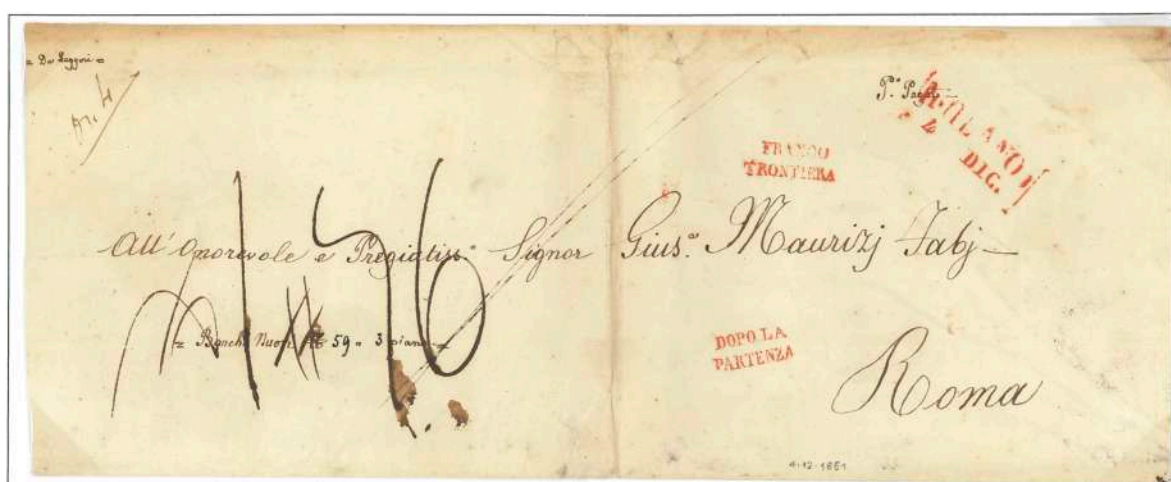 = Da Leggersi =
P.º Pagato
MILANO
4
DIC.
FRANCO
FRONTIERA
All' Onorevole e Pregiatiss.º Signor Gius.e Maurizj Fabj
= Banchi Nuovi Nº 59 = 3 piano =
DOPO LA
PARTENZA
Roma
4-12-1851